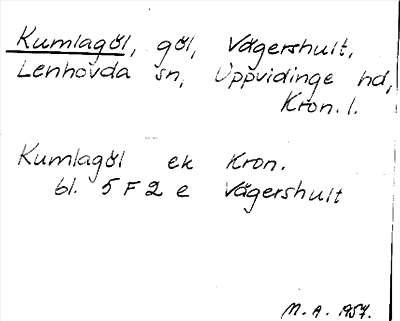 Kumlagöl, göl, Vägershult,
Lenhovda sn, Uppvidinge hd,
Kron. l.
Kumlagöl ek Kron.
bl. 5 F 2 e Vägershult
M. A. 1957.